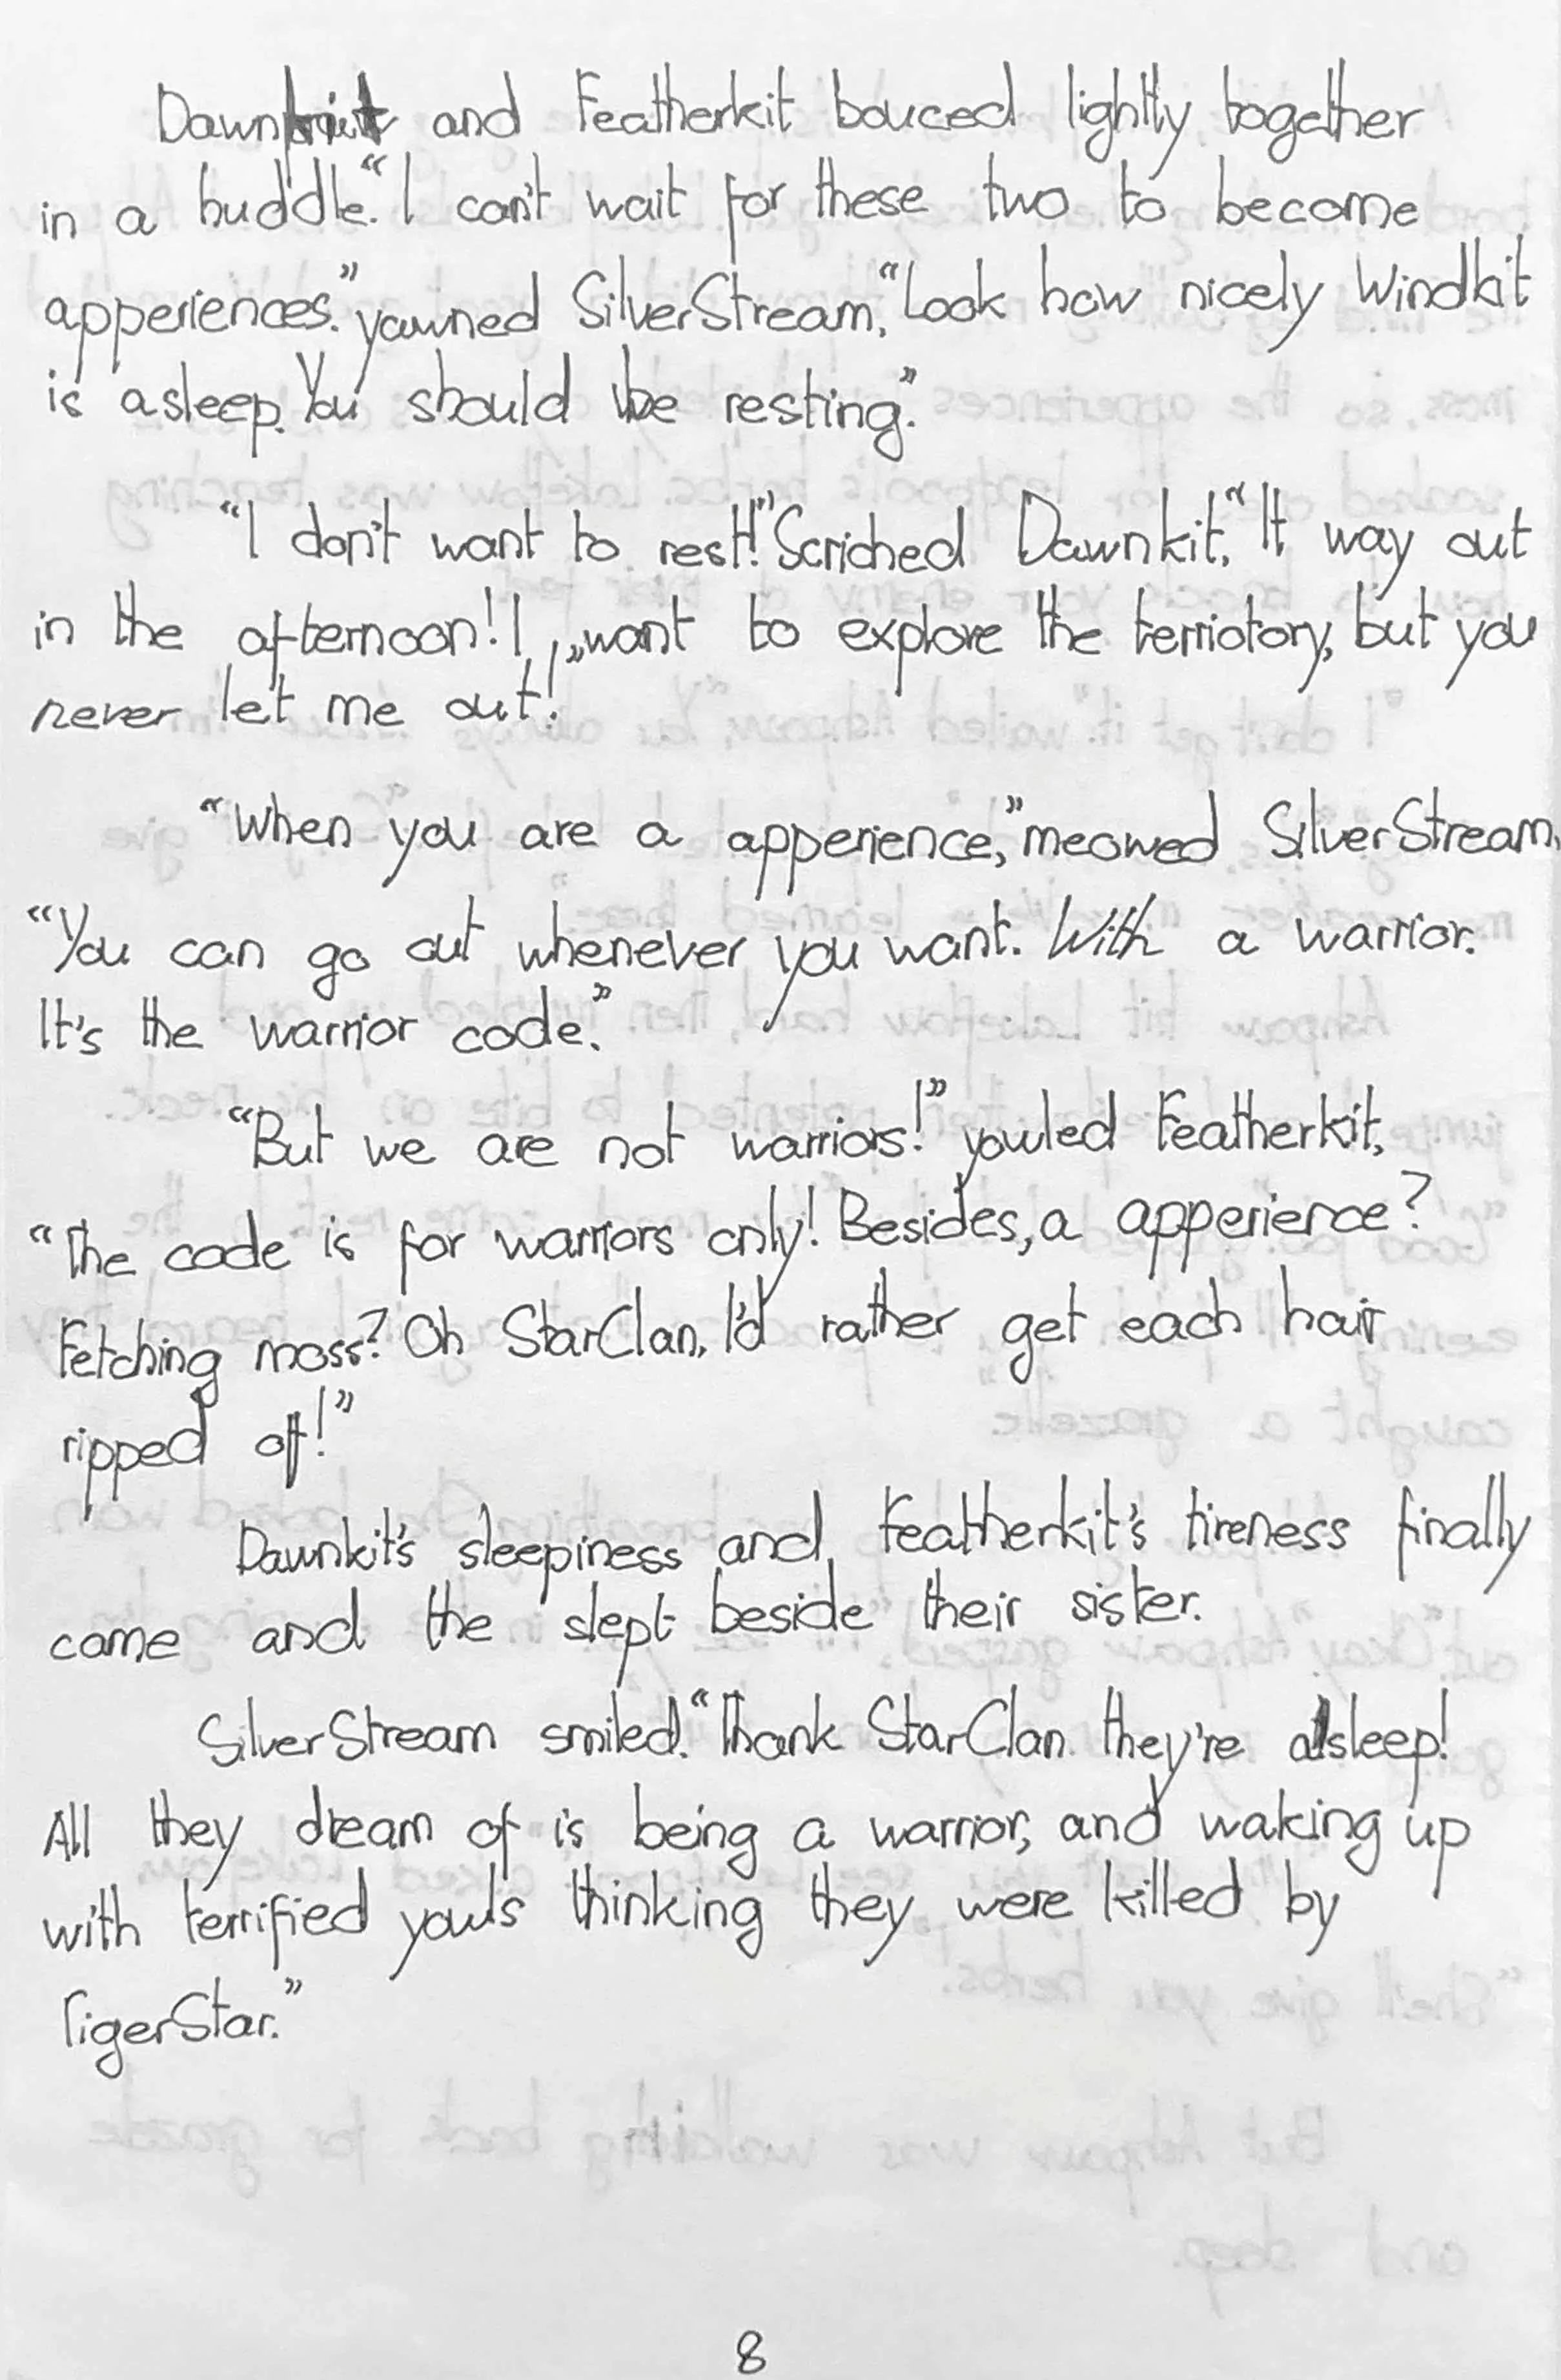 Dawnkit and Featherkit bouced lightly together
in a huddle. "I can't wait for these two to become
apperiences." yawned SilverStream, "Look how nicely Windkit
is asleep. You should be resting."
"I don't want to rest!" Scriched Dawnkit. "It way out
in the afternoon! I want to explore the terriotory, but you
never let me out!"
"When you are a apperience," meowed SilverStream,
"You can go out whenever you want. With a warrior.
It's the warrior code."
"But we are not warriors!" yowled Featherkit,
"The code is for warriors only! Besides, a apperience?
Fetching moss? Oh StarClan, I'd rather get each hair
ripped off!"
Dawnkit's sleepiness and Featherkit's tireness finally
came and the slept beside their sister.
SilverStream smiled. "Thank StarClan they're asleep!
All they dream of is being a warrior, and waking up
with terrified yowls thinking they were killed by
TigerStar."
8